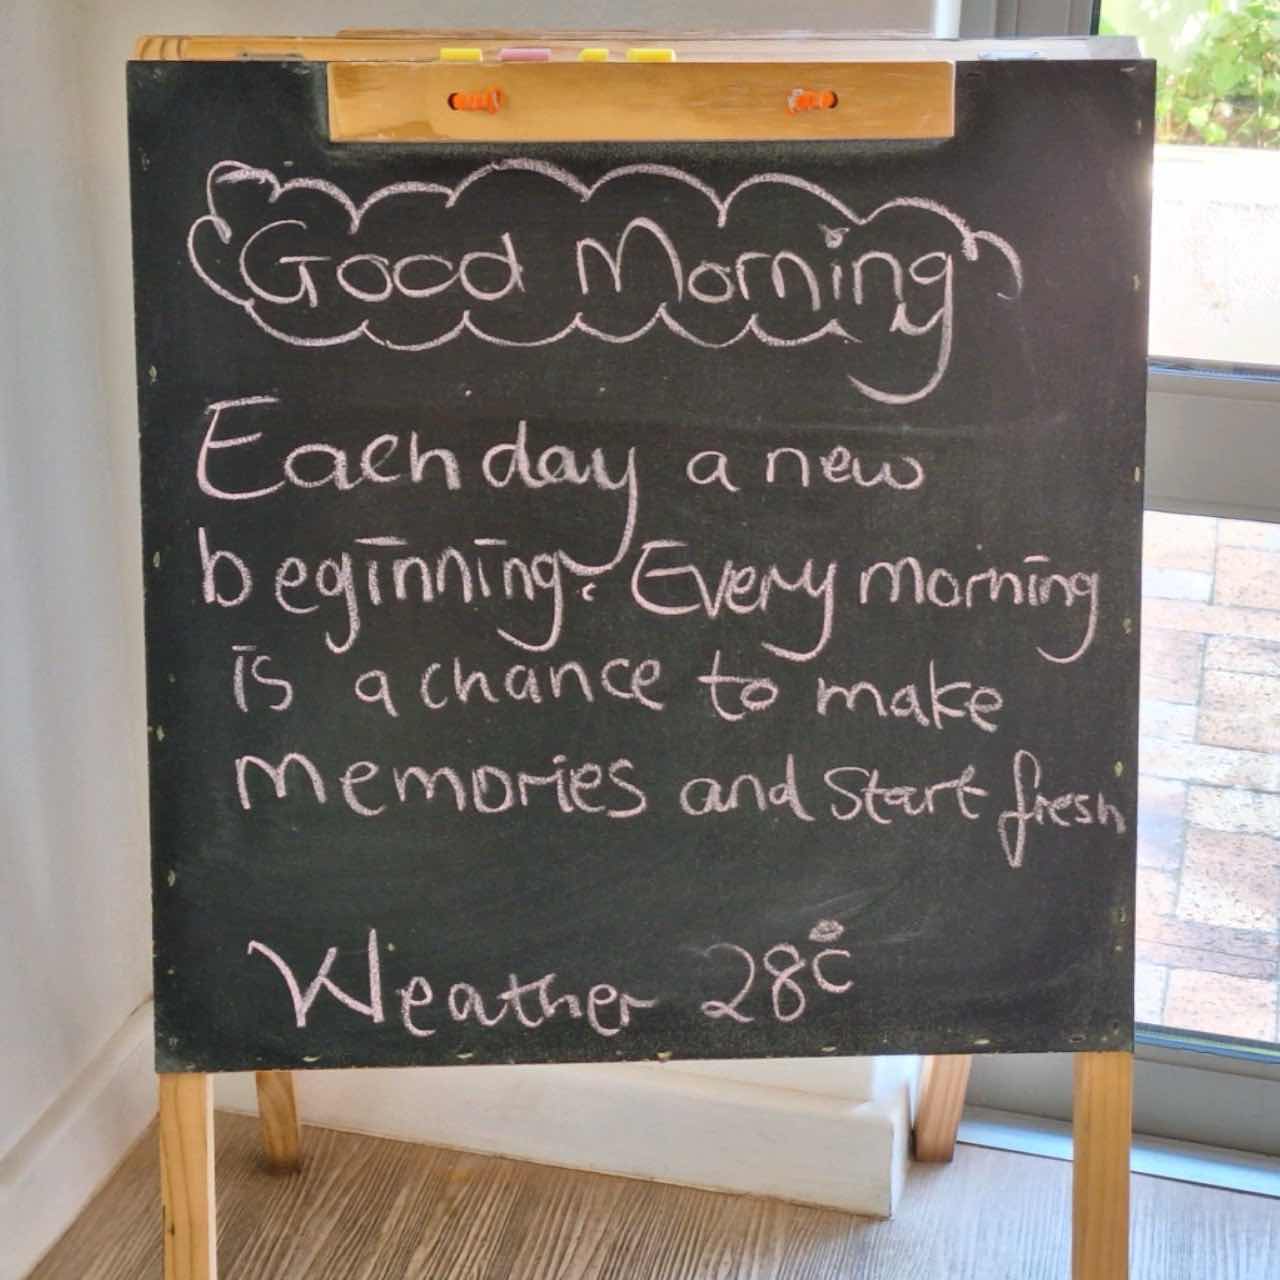 Good Morning
Each day a new
beginning. Every morning
is a chance to make
memories and start fresh
Weather 28°C